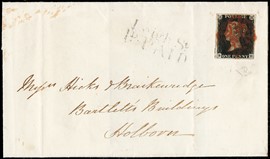 POSTAGE
ONE PENNY
PAID
Messrs Hicks & Braikenridge
Bartletts Buildings
Holborn